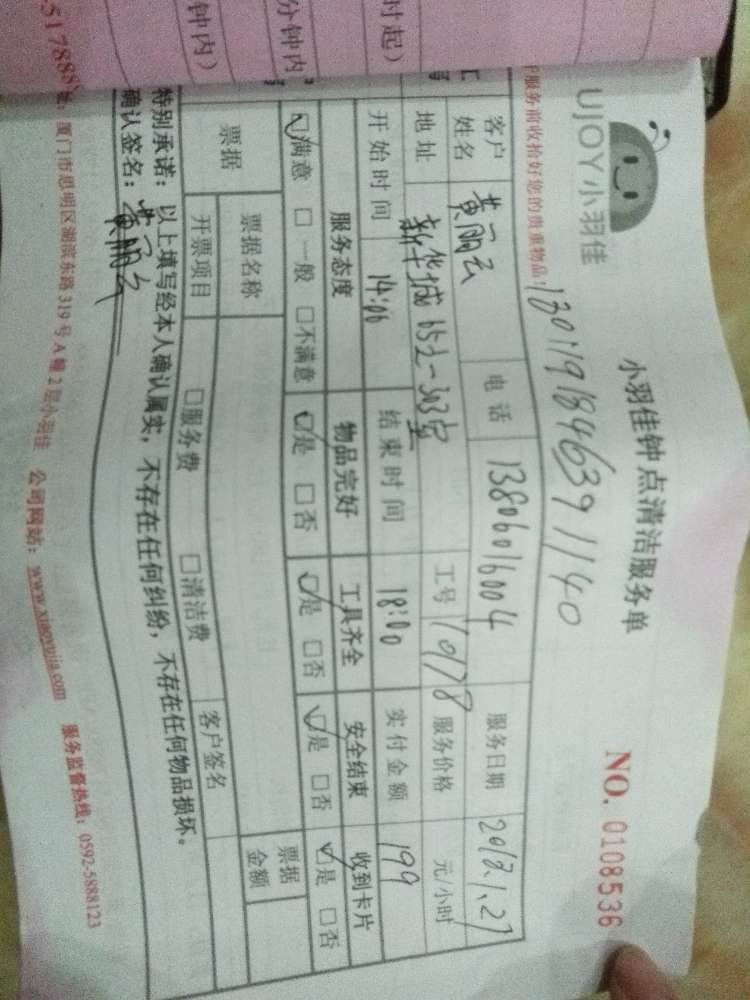 时起）
分钟内
钟内）
UJOY小羽佳
小羽佳钟点清洁服务单
NO. 0108536
服务前收拾好您的贵重物品！
1301191846391140
客户姓名 黄丽云 电话 13806016004 服务日期 2018.1.27
地址 新华城65之一303室 工号 10178 服务价格 元/小时
开始时间 14:06 结束时间 18:00 实付金额 199
服务态度 物品完好 工具齐全 安全结束 收到卡片
☑满意 □一般 □不满意 ☑是 □否 ☑是 □否 ☑是 □否 ☑是 □否
票据 票据名称 票据金额
开票项目 □服务费 □清洁费 客户签名
特别承诺：以上填写经本人确认属实，不存在任何纠纷，不存在任何物品损坏。
确认签名：黄丽云
517888
址：厦门市思明区湖滨东路319号A幢2层小羽佳 公司网站：www.xiaoyujia.com 服务监督热线：0592-5888123